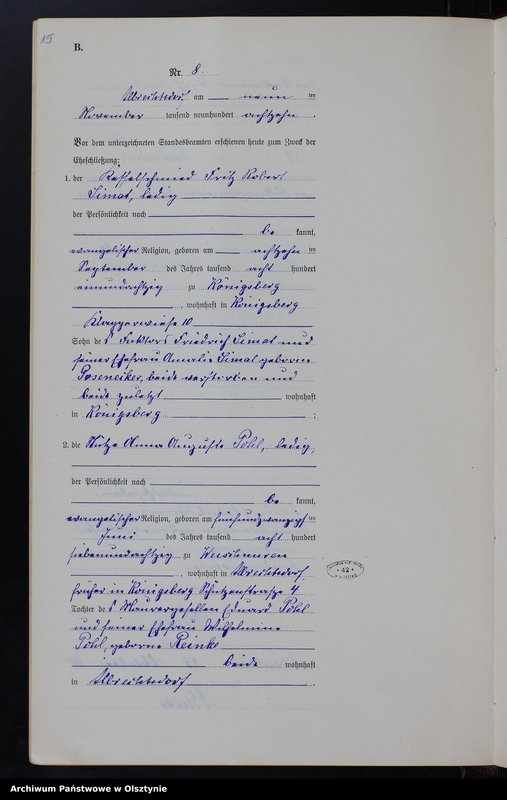 15
B.
Nr. 8.
Albrechtsdorf am neun ten
November tausend neunhundert achtzehn.
Vor dem unterzeichneten Standesbeamten erschienen heute zum Zweck der
Eheschließung:
1. der Kesselschmied Fritz Robert
Simat, ledig
der Persönlichkeit nach
be kannt,
evangelischer Religion, geboren am achtzehn ten
September des Jahres tausend acht hundert
einundachtzig zu Königsberg
, wohnhaft in Königsberg
Klapperwiese 10
Sohn des Friedrich Simat und
seiner Ehefrau Amalie Simat geborene
beide verstorben und
beide zuletzt wohnhaft
in Königsberg. ;
2. die Stütze Anna Auguste Pohl, ledig,
der Persönlichkeit nach
be kannt,
evangelischer Religion, geboren am fünfundzwanzigs ten
Juni des Jahres tausend acht hundert
siebenundachtzig zu
, wohnhaft in Albrechtsdorf,
früher in Königsberg Schützenstraße 4
Tochter des Maurergesellen Eduard Pohl
und seiner Ehefrau Wilhelmine
Pohl, geborne Reinke
beide wohnhaft
in Albrechtsdorf.
42
Archiwum Państwowe w Olsztynie